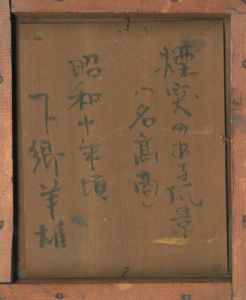 煙突のある風景
(名高商)
昭和十年頃
下郷羊雄